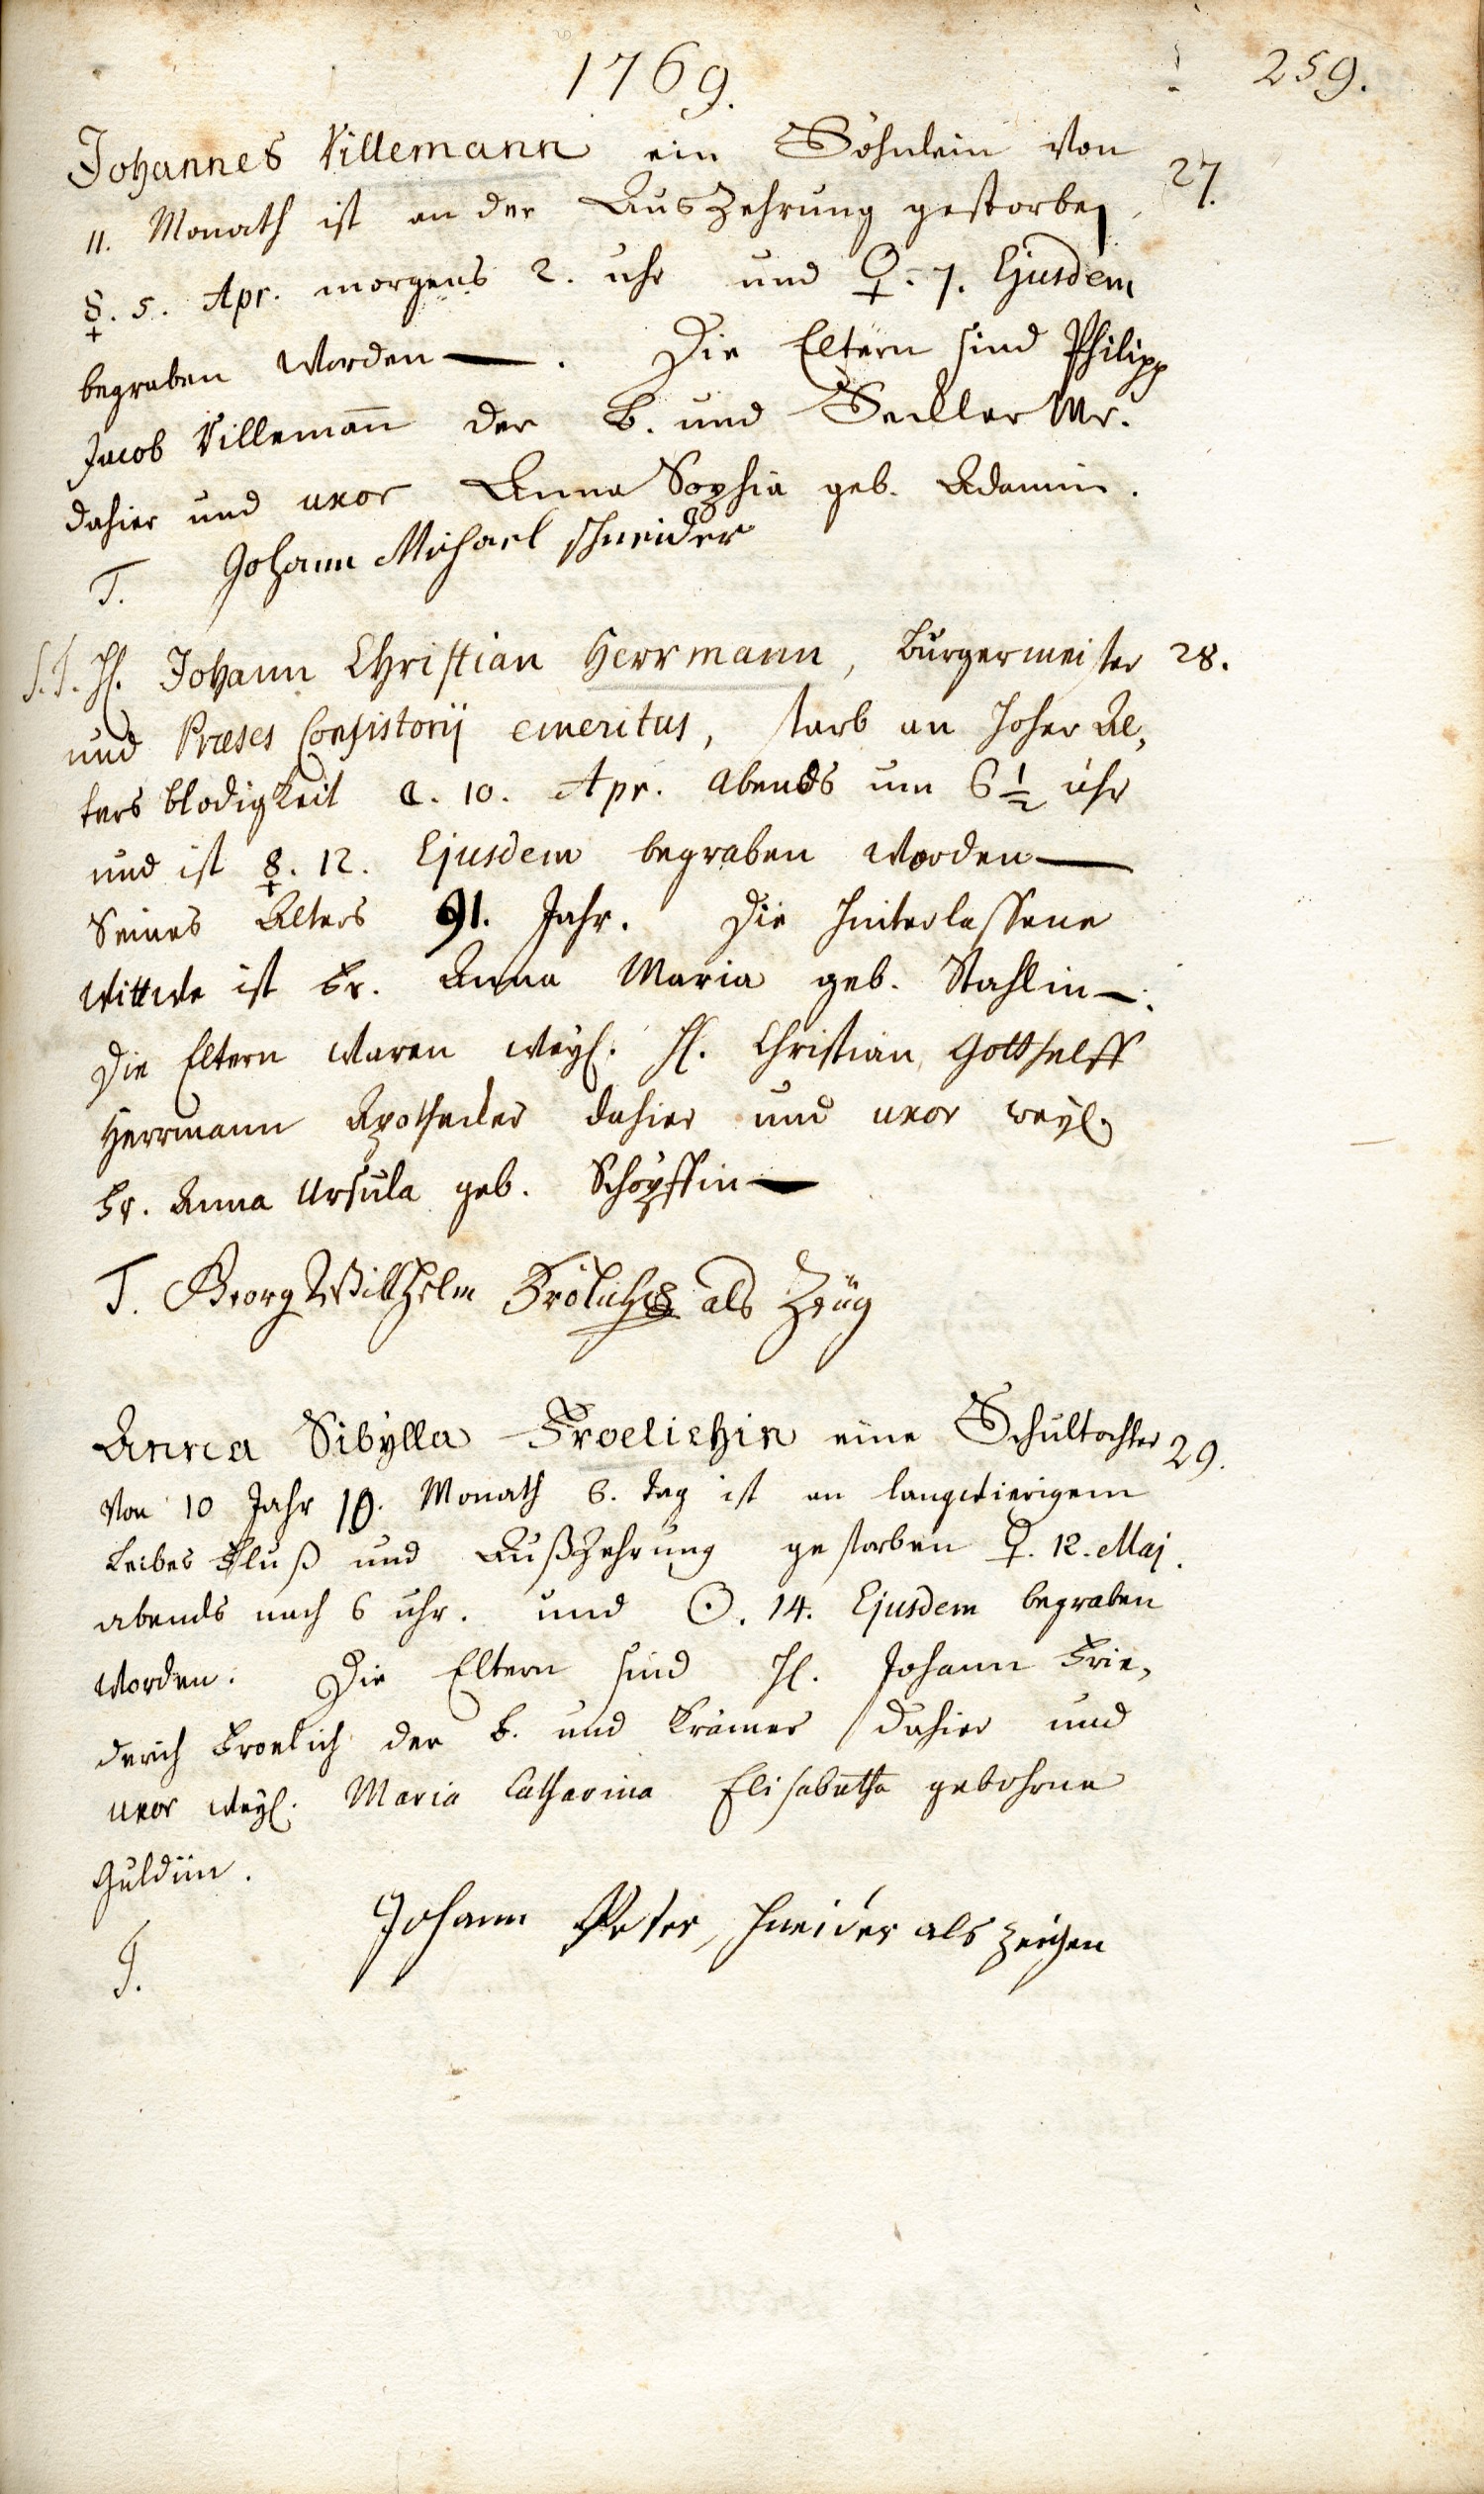 1769.
259.
Johannes Villemann ein Söhnlein von
27.
11. Monath ist an der Auszehrung gestorben,
☿. 5. Apr. morgens 2. uhr und ♀. 7. Ejusdem
begraben worden —. Die Eltern sind Philipp
Jacob Villemañ der B. und Seckler Mr.
dahier und uxor Anna Sophia geb. Adamin.
T. Johann Michael schneider
S. T. H. Johann Christian Herrmann, Burgermeister
28.
und Præses Consistorij emeritus, starb an hoher Al,
ters blodigkeit ☾. 10. Apr. Abends um 6 1/2 uhr
und ist ☿. 12. Ejusdem begraben worden —
Seines Alters 91. Jahr. Die hinterlassene
Wittwe ist Fr. Anna Maria geb. Stahlin —.
Die Eltern waren weyl. H. Christian Gotthelff
Herrmann Apothecker dahier und uxor weyl.
Fr. Anna Ursula geb. Schöpffin —
T. Georg Wilhelm Frölich als Zeüg
Anna Sibylla Froelichin eine Schultochter
29.
Von 10 Jahr 10. Monath 6. tag ist an langwierigem
Leibes Fluß und Außzehrung gestorben ♀. 12. Maj.
abends nach 6 uhr. und ☉. 14. Ejusdem begraben
worden. Die Eltern sind H. Johann Frie,
derich Froelich der B. und Krämer dahier und
uxor weyl. Maria Catharina Elisabetha gebohrne
Guldiin.
T. Johann Peter schneider als zeigen